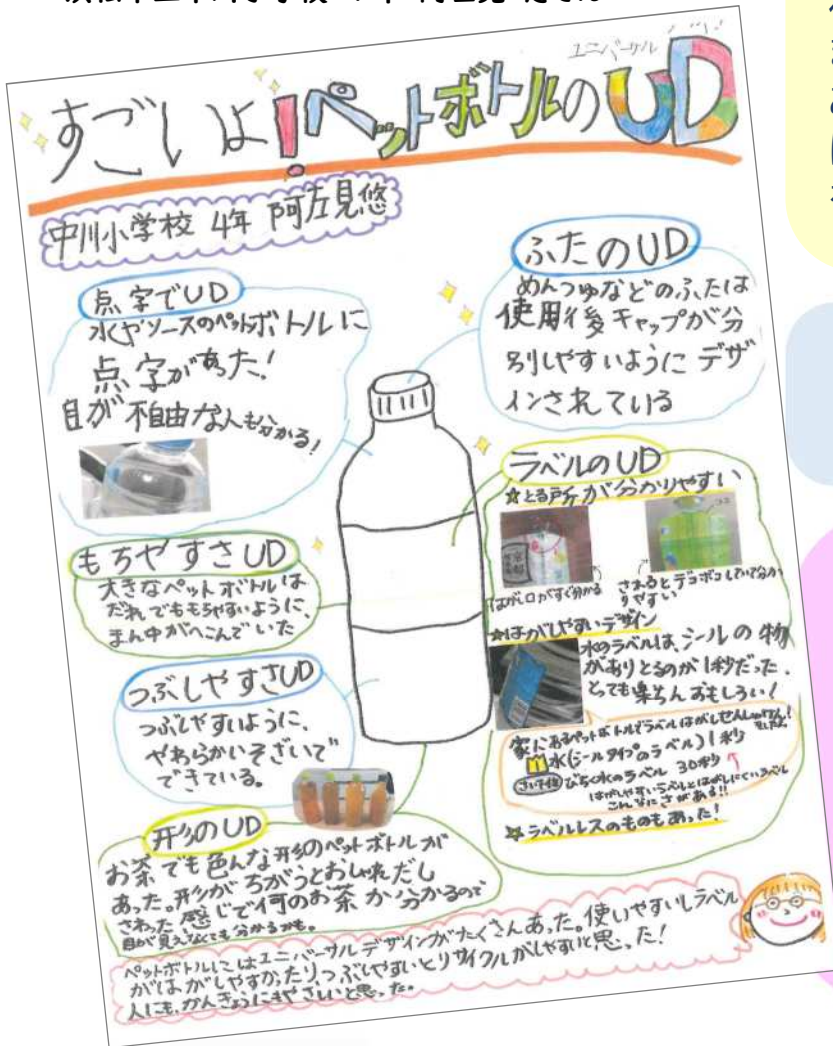 ユニバーサル
すごいよ!ペットボトルのUD
中川小学校 4年 阿左見悠
点字でUD
水やソースのペットボトルに
点字があった!
目が不自由な人も分かる!
もちやすさUD
大きなペットボトルは
だれでももちやすいように、
まん中がへこんでいた
つぶしやすさUD
つぶしやすいように、
やわらかいそざいで
できている。
形のUD
お茶でも色んな形のペットボトルが
あった。形がちがうとおしゃれだし
さわった感じで何のお茶か分かるので
目が見えなくても分かるかも。
ふたのUD
めんつゆなどのふたは
使用後キャップが分
別しやすいようにデザ
インされている
ラベルのUD
☆とる所が分かりやすい
ココ
はがし口がすぐ分かる
さわるとデコボコしていて分か
りやすい
☆はがしやすいデザイン
水のラベルは、シールの物
がありとるのが1秒だった。
とっても楽ちんおもしろい!
家にあるペットボトルでラベルはがしせんしゅけん!
1 水(シールタイプのラベル)1秒
さい下位 びちく水のラベル 30秒
はがしやすいラベルとはがしにくいラベル
こんなにさがある!!
☆ラベルレスのものもあった!
ペットボトルにはユニバーサルデザインがたくさんあった。使いやすいしラベル
がはがしやすかったり、つぶしやすいとリサイクルがしやすいと思った!
人にも、かんきょうにもやさしいと思った。